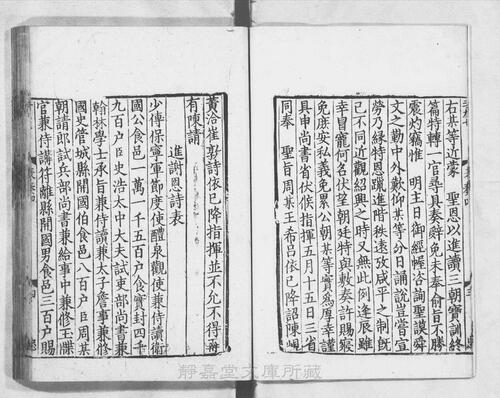 右某等近蒙　聖恩以進讀三朝寶訓終
篇特轉一官尋具奏辭免未奉俞旨不勝
震灼竊惟　明主日御經幄咨詢聖謨舜
文之勤中外歎仰某等分日誦說豈當宣
勞乃緣特恩躐進階秩遠攷咸平之制旣
已不同近觀紹興之時又無此例逢辰雖
幸冒寵何名伏望朝廷特與敷奏許賜寢
免庶安私義免累公朝某等實爲厚幸謹
具申尚書省伏候指揮五月十五日三省
同奉　聖旨周某王希呂依已降詔陳峴
黃洽崔敦詩依已降指揮並不允不得再
有陳請
進謝恩詩表
少傅保寧軍節度使醴泉觀使兼侍讀衛
國公食邑一萬一千五百戶食實封四千
九百戶臣史浩太中大夫試吏部尚書兼
翰林學士承旨兼侍讀兼太子詹事兼修
國史管城縣開國伯食邑八百戶臣周某
朝請郎試兵部尚書兼給事中兼修玉牒
官兼侍講符離縣開國男食邑三百戶賜
靜嘉堂文庫所藏